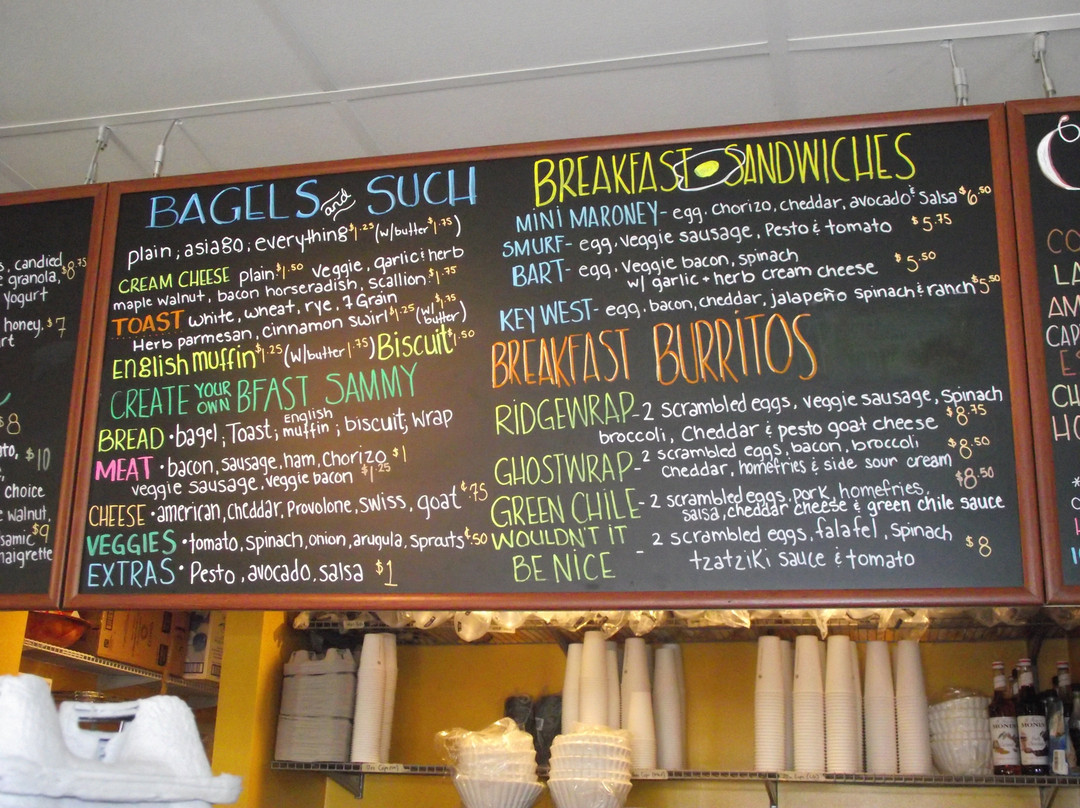 s, candied
e granola, $8.75
yogurt
honey, $7
rt
$8
ato, $10
choice
walnut,
samic $9
naigrette
BAGELS and SUCH
plain, asiago, everything $1.25 (w/butter $1.75)
CREAM CHEESE plain $1.50 veggie, garlic & herb
maple walnut, bacon horseradish, scallion $1.75
TOAST white, wheat, rye, 7 Grain
Herb parmesan, cinnamon swirl $1.25 (w/ butter) $1.75
English muffin $1.25 (w/butter 1.75) Biscuit $1.50
CREATE YOUR OWN BFAST SAMMY
BREAD • bagel, Toast, english muffin, biscuit, wrap
MEAT • bacon, sausage, ham, chorizo $1
veggie sausage, veggie bacon $1.25
CHEESE • american, cheddar, provolone, swiss, goat $.75
VEGGIES • tomato, spinach, onion, arugula, sprouts $.50
EXTRAS • Pesto, avocado, salsa $1
BREAKFAST SANDWICHES
MINI MARONEY - egg, chorizo, cheddar, avocado & salsa $6.50
SMURF - egg, veggie sausage, pesto & tomato $5.75
BART - egg, veggie bacon, spinach
w/ garlic + herb cream cheese $5.50
KEY WEST - egg, bacon, cheddar, jalapeño spinach & ranch $5.50
BREAKFAST BURRITOS
RIDGEWRAP - 2 scrambled eggs, veggie sausage, spinach
broccoli, cheddar & pesto goat cheese $8.75
GHOSTWRAP - 2 scrambled eggs, bacon, broccoli
cheddar, homefries & side sour cream $8.50
GREEN CHILE - 2 scrambled eggs, pork, homefries, $8.50
salsa, cheddar cheese & green chile sauce
WOULDN'T IT
BE NICE - 2 scrambled eggs, falafel, spinach
tzatziki sauce & tomato $8
CO
LA
AM
CAP
E
CH
HO